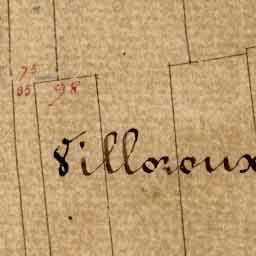 75
85 98
Villoroux